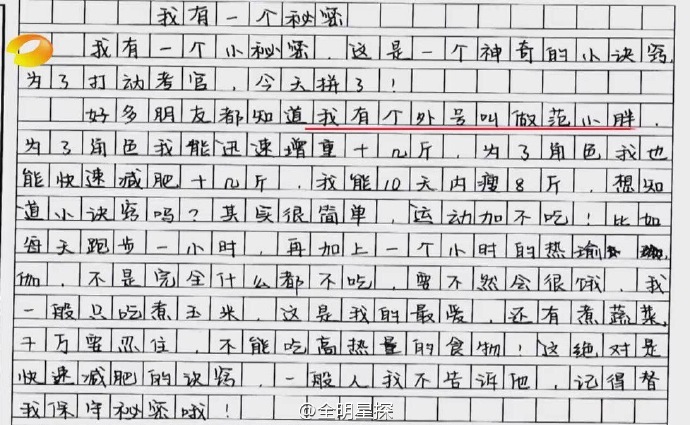 我有一个秘密
我有一个小秘密,这是一个神奇的小诀窍,
为了打动考官,今天拼了!
好多朋友都知道我有个外号叫做范小胖,
为了角色我能迅速增重十几斤,为了角色我也
能快速减肥十几斤,我能10天内瘦8斤,想知
道小诀窍吗?其实很简单,运动加不吃!比如
每天跑步一小时,再加上一个小时的热瑜
伽,不是完全什么都不吃,要不然会很饿,我
一般只吃煮玉米,这是我的最爱,还有煮蔬菜,
千万要忍住,不能吃高热量的食物!这绝对是
快速减肥的诀窍,一般人我不告诉他,记得替
我保守秘密哦!
@全明星探